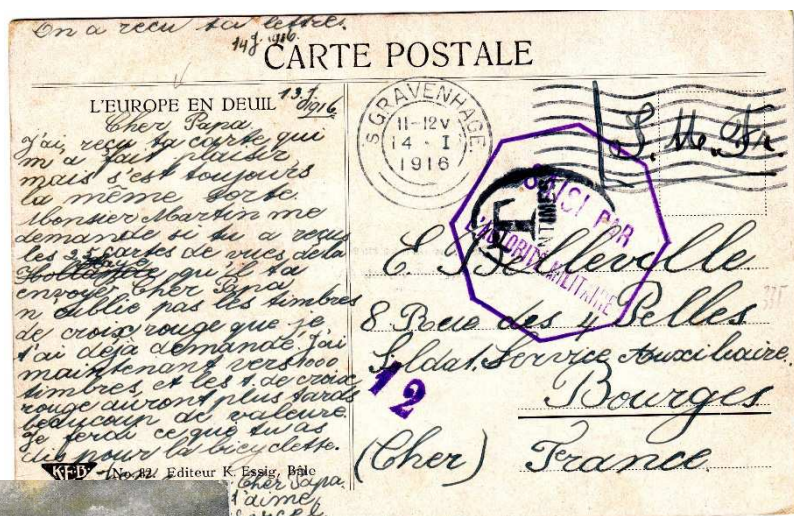 On a recu ta lettre.
14 J. 1916.
CARTE POSTALE
L'EUROPE EN DEUIL
13 J. 1916
Cher Papa
J'ai reçu ta carte, qui
m'a fait plaisir
mais s'est toujours
la même sorte
Monsier Martin me
demande si tu a reçus
les 2 cartes de vues de la
Hollande qu'il t'a
envoyer Cher Papa
n'oublie pas les timbres
de croix rouge que je
t'ai déjà demandé, j'ai
maintenant vers 1000
timbres, et les t. de croix
rouge auront plus tards
beaucoup de valeure
Je ferai ce que tu as
dis pour la bicyclette.
K.E.B. No. 82. Editeur K. Essig, Bâle
Cher Papa.
t'aime
'S GRAVENHAGE
11-12 V
14 - I
1916
S. M. Fr.
SAISI PAR
L'AUTORITÉ MILITAIRE
T
CENTIMES
E. Belleville
8 Rue des 4 Pelles
Soldat. Service Auxiliaire.
12
Bourges
(Cher) France.